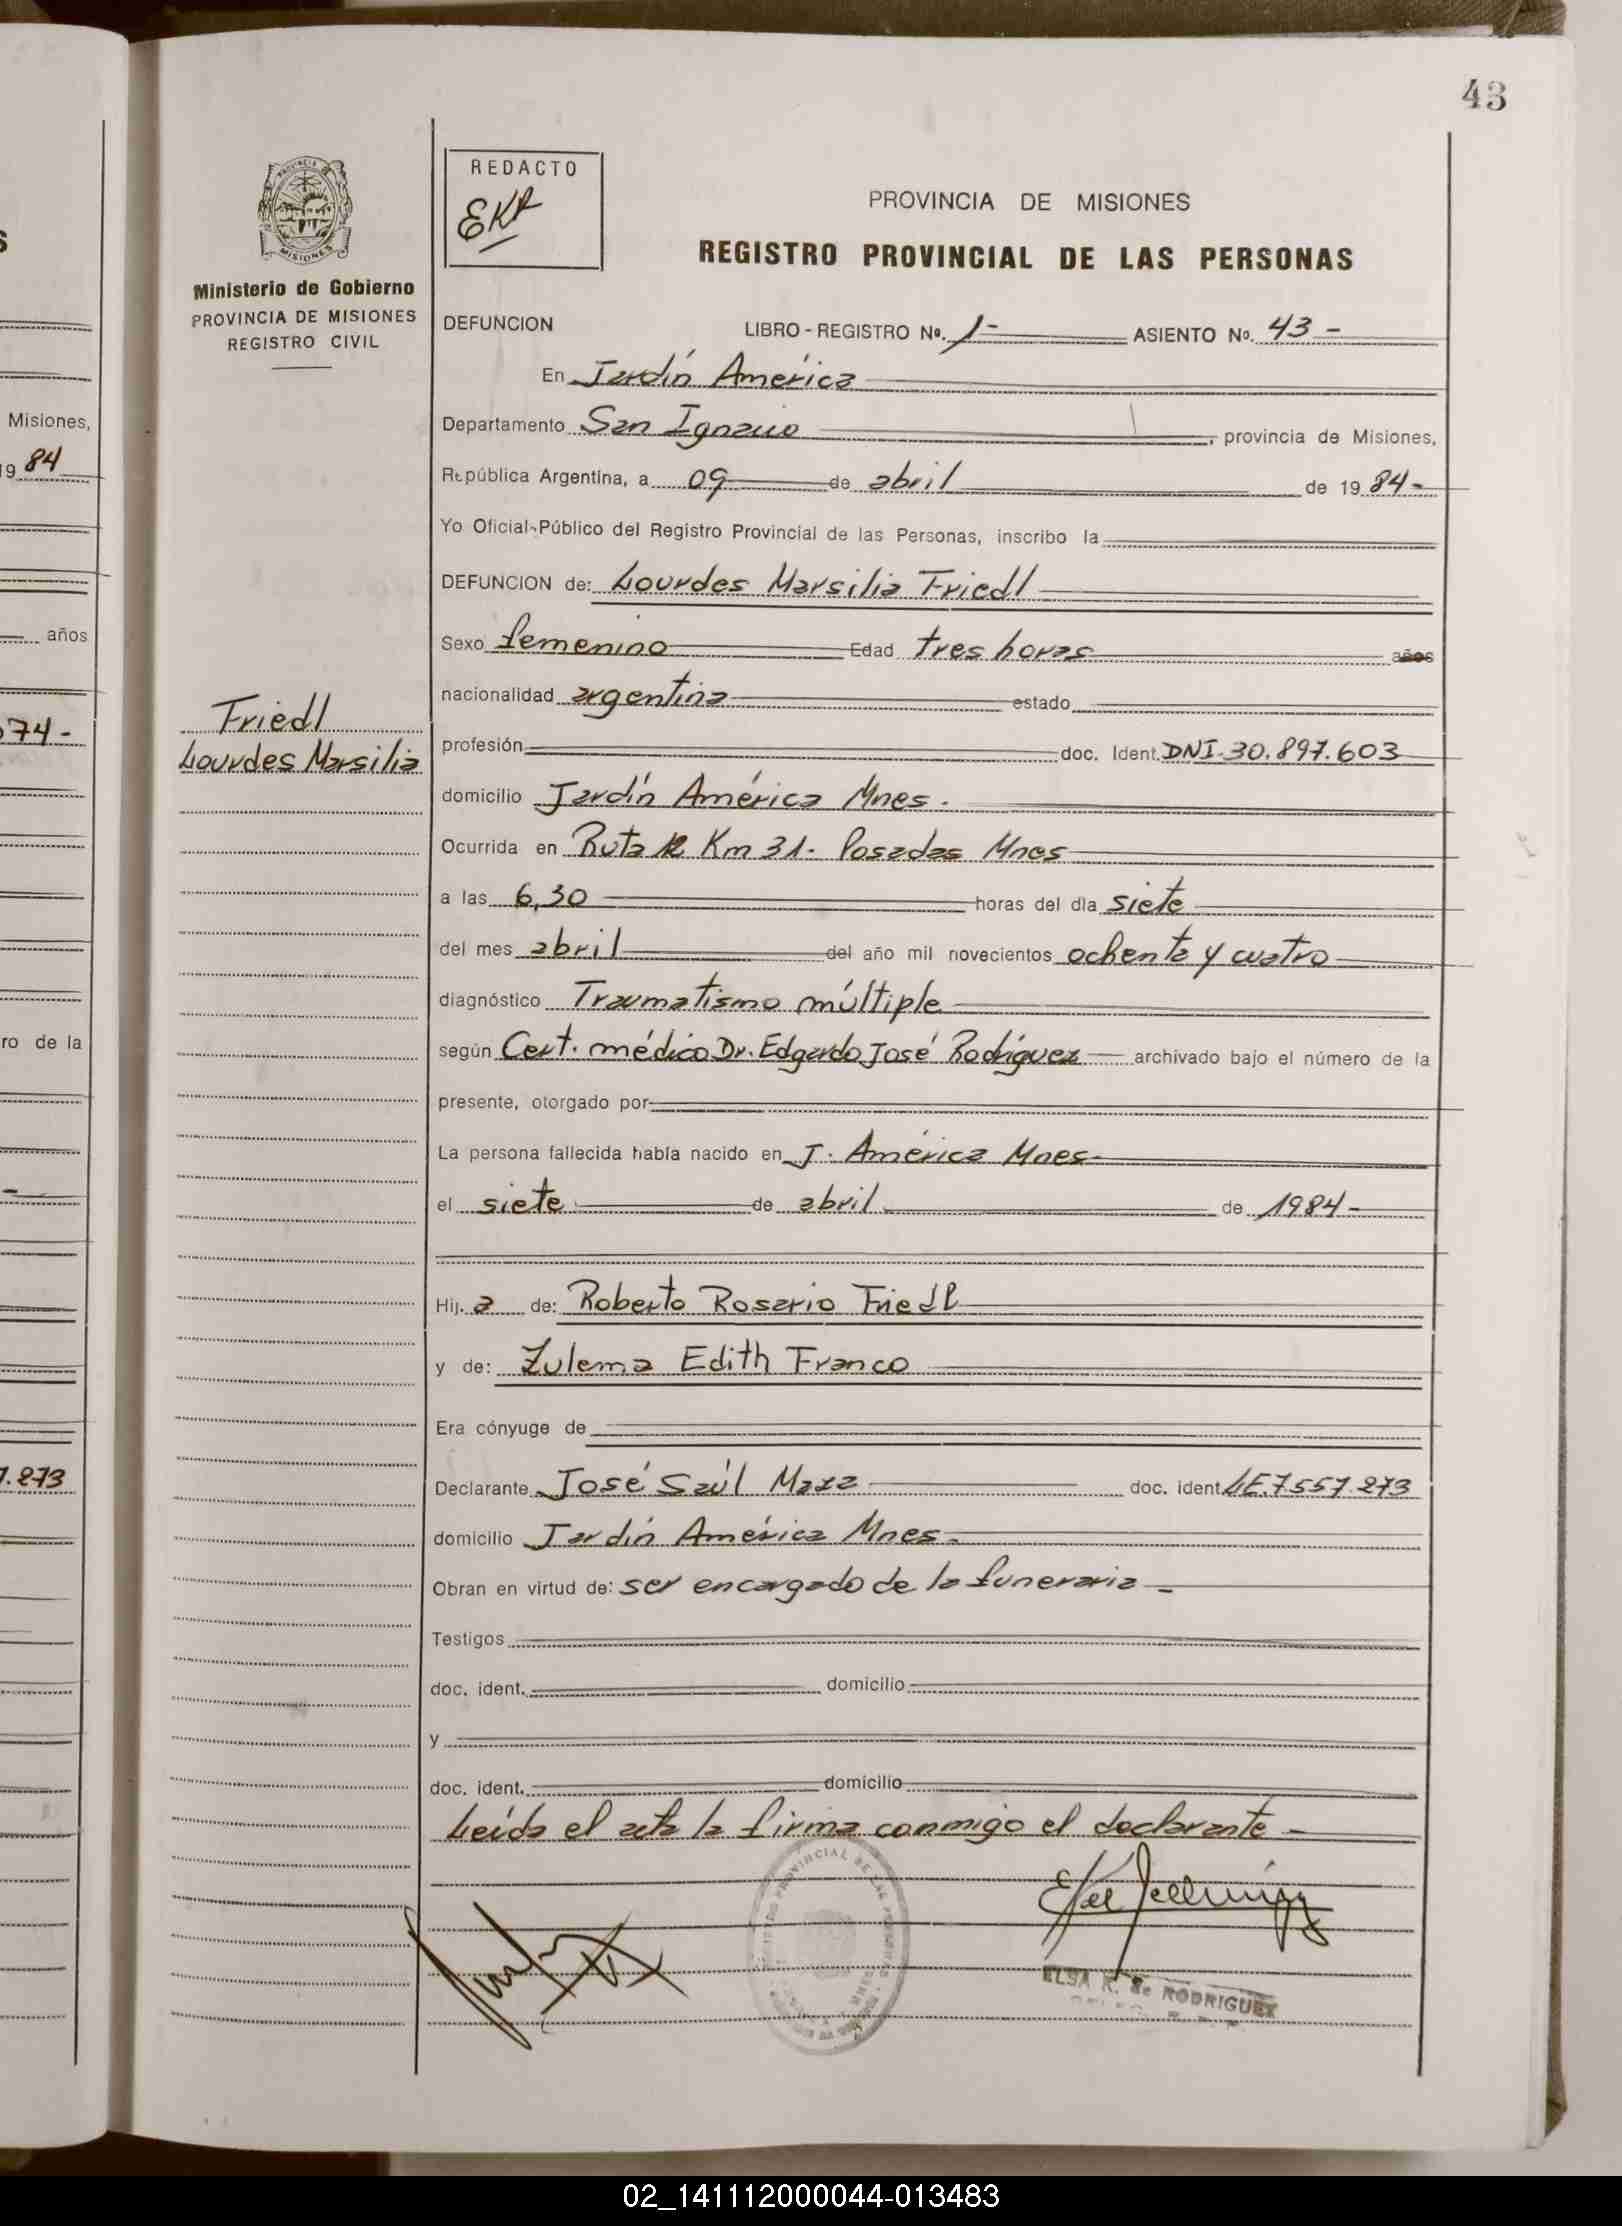 43
PROVINCIA
MISIONES
Ministerio de Gobierno
PROVINCIA DE MISIONES
REGISTRO CIVIL
REDACTO
EKR
PROVINCIA DE MISIONES
REGISTRO PROVINCIAL DE LAS PERSONAS
DEFUNCION LIBRO - REGISTRO Nº. 1- ASIENTO Nº. 43 -
En Jardín América
Departamento San Ignacio, provincia de Misiones,
República Argentina, a 09 de abril de 1984-
Yo Oficial Público del Registro Provincial de las Personas, inscribo la
DEFUNCION de: Lourdes Marsilia Friedl
Sexo femenino Edad tres horas años
nacionalidad argentina estado
Friedl
Lourdes Marsilia
profesión doc. Ident. DNI-30.897.603
domicilio Jardín América Mnes.
Ocurrida en Ruta 12 Km 31. Posadas Mnes
a las 6,30 horas del día siete
del mes abril del año mil novecientos ochenta y cuatro
diagnóstico Traumatismo múltiple
según Cert. médico Dr. Edgardo José Rodríguez archivado bajo el número de la
presente, otorgado por
La persona fallecida había nacido en J. América Mnes-
el siete de abril de 1984-
Hij. a de: Roberto Rosario Friedl
y de: Zulema Edith Franco
Era cónyuge de
Declarante José Saúl Maza doc. ident. LE.7557.273
domicilio Jardín América Mnes-
Obran en virtud de: ser encargado de la funeraria -
Testigos
doc. ident. domicilio
y
doc. ident. domicilio
Leída el acta la firma conmigo el declarante -
ELSA K. de RODRIGUEZ
Misiones,
1984
años
674-
ro de la
7.273
02_141112000044-013483